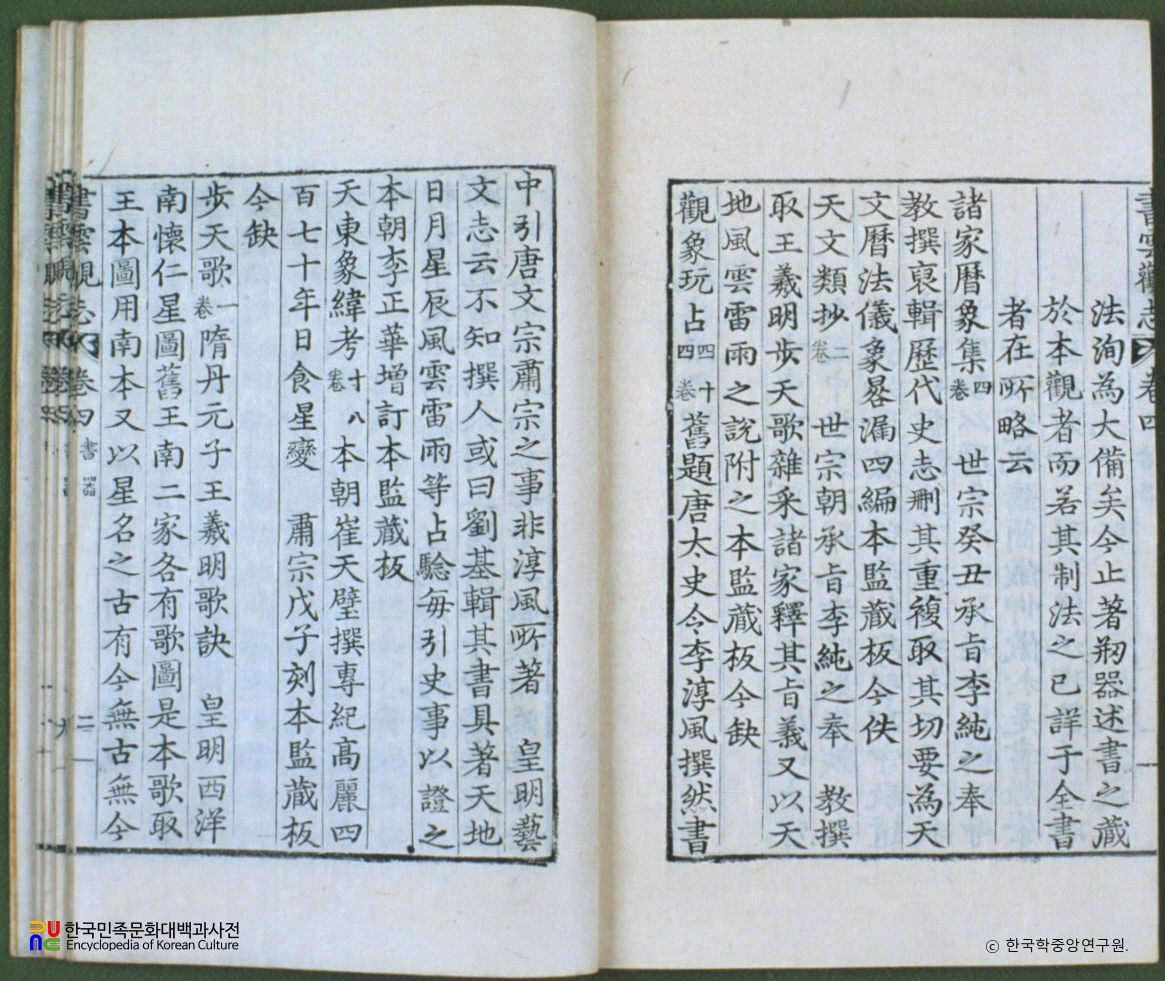 書雲觀志 卷四
法詢為大備矣今止著刱器述書之藏
於本觀者而若其制法之已詳于全書
者在所略云
諸家曆象集四卷 世宗癸丑承旨李純之奉
教撰裒輯歷代史志刪其重複取其切要為天
文曆法儀象晷漏四編本監藏板今佚
天文類抄二卷 世宗朝承旨李純之奉 教撰
取王羲明步天歌雜采諸家釋其旨義又以天
地風雲雷雨之說附之本監藏板今缺
觀象玩占四十四卷舊題唐太史令李淳風撰然書
中引唐文宗肅宗之事非淳風所著 皇明藝
文志云不知撰人或曰劉基輯其書具著天地
日月星辰風雲雷雨等占驗每引史事以證之
本朝李正華增訂本監藏板
天東象緯考十八卷 本朝崔天璧撰專紀高麗四
百七十年日食星變 肅宗戊子刻本監藏板
今缺
步天歌一卷隋丹元子王羲明歌訣 皇明西洋
南懷仁星圖舊王南二家各有歌圖是本歌取
王本圖用南本又以星名之古有今無古無今
書雲觀志 卷四
한국민족문화대백과사전
Encyclopedia of Korean Culture
© 한국학중앙연구원.